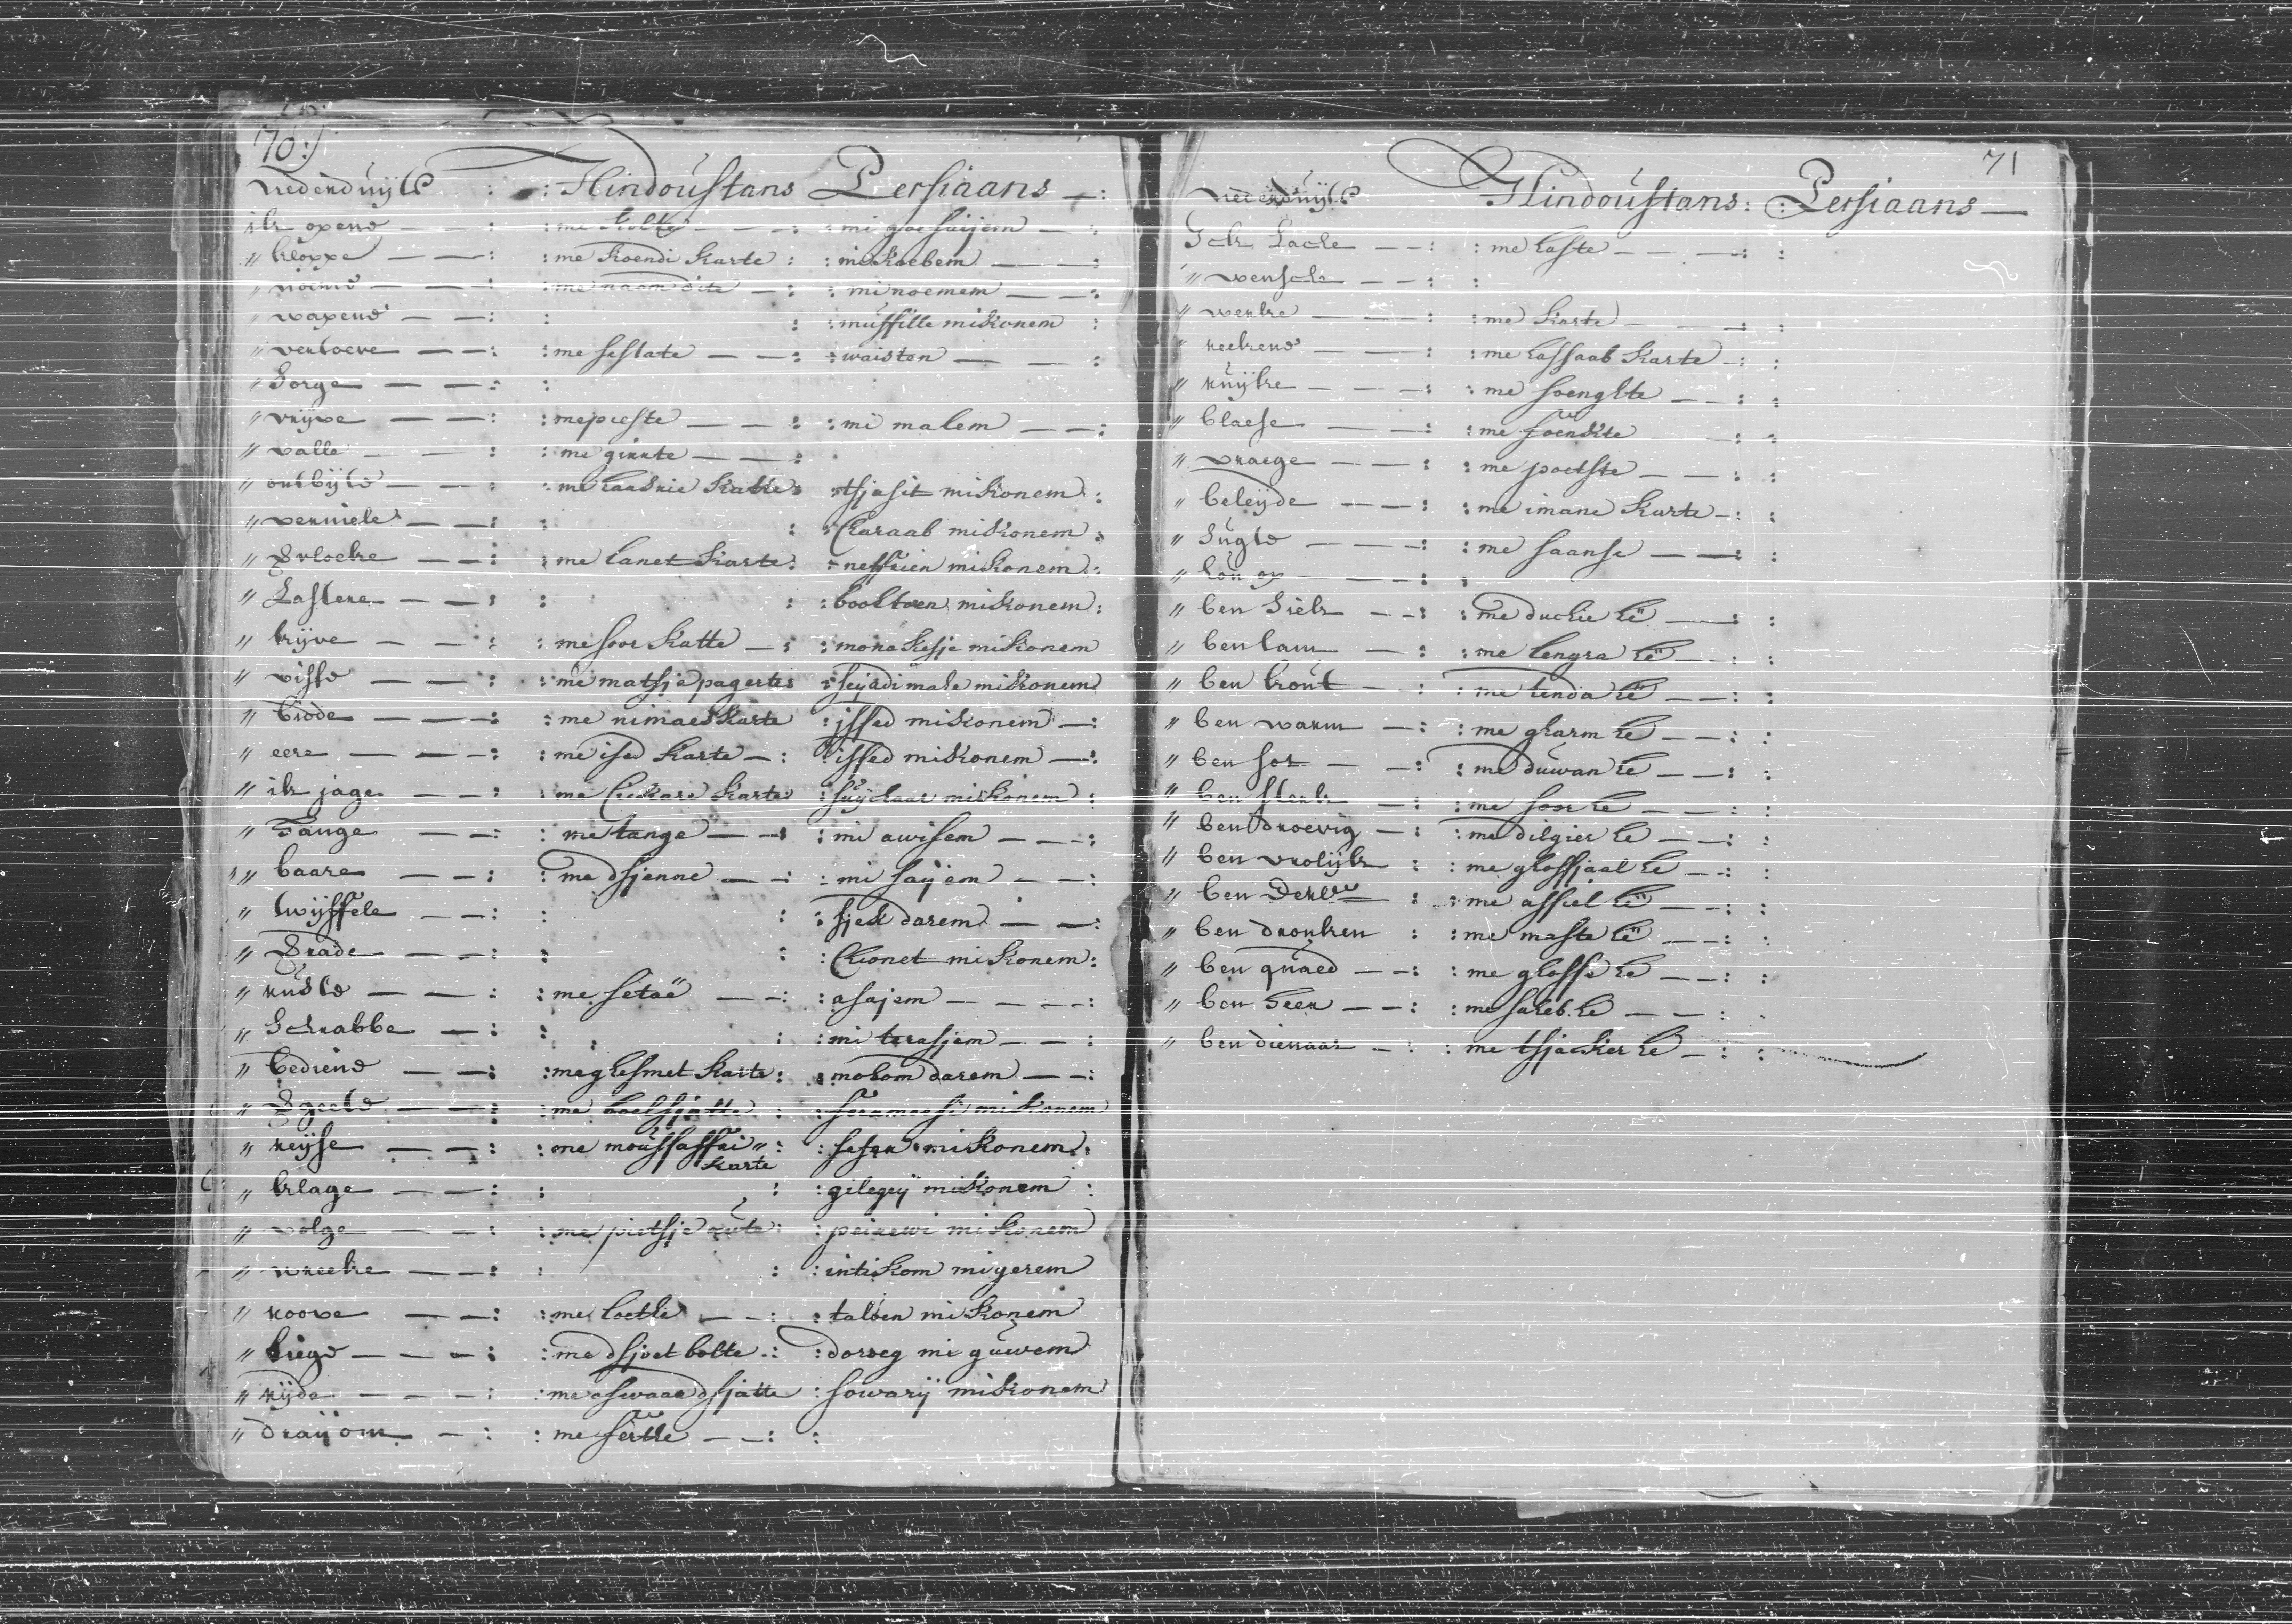 70:)
Nederduijts : : Hindoustans Persiaans — :
ik opene — — : : me kolte — — : : mi goesaijem — :
" kloppe — — : : me koendi karte : : mi koebem — — :
" noeme — — : : me naam dete — : : mi noemem — — :
" wapene — — : : : muffille miskonem :
" vertoeve — — : : me seslate — — : : waiston — — :
" Sorge — — : :
" vrijve — — : : me pieste — — : : mi malem — — :
" valle — — : : me girrte — — :
" ontbijte — — : : me haaskie katte : : tsjasit miskonem :
" verniele — — : : : Charaab miskonem :
" Vloeke — — : : me lanet karte : : neffrien miskonem :
" Lastere — — : : : booltoen miskonem :
" kijve — — : : me soor katte — : : monakesje miskonem
" visse — — : : me matsje pagerte : : seijadi mahe miskonem
" biede — — : : me nimaes karte : jssed miskonem — :
" eere — — : : me ised karte — : : issed miskonem — :
" ik jage — — : : me Chekare karte : suijclaar miskonem :
" Fange — — : : me lange — — : : mi awisem — — :
" baare — — : : me dsjenne — — : : mi saijem — — :
" twijffele — — : : : sjek darem — — :
" Brade — — : : : Chonet miskonem :
" ruste — — : : me setaë — — : : asajem — — :
" Schrabbe — : : : mi terasjem — — :
" bediene — — : : me ghesmet karte : : nokom darem — — :
" Vgeete — — : : me boelsjatte : : feramoesi miskonem
" reijse — — : : me moussaffri " : : sefer miskonem :
karte
" klage — — : : : gilegeij miskonem :
" volge — — : : me pietsje aute : : peirewi miskonem
" wreeke — — : : : intiskom migerem
" roove — — : : me loethe — — : : talben miskonem
" liege — — — : : me dsjoet bolte : : doroeg mi guwem
" rijde — — — : : me aswaar dsjatte : sowarij miskonem
" draij om — : : me ferte — — : :
71
Nederduijts Hindoustans : : Persiaans —
Ick Lache — — : : me haste — — — : :
" wensche — — : :
" werke — — : : me karte — — : :
" reekene — — : : me hassaab karte — : :
" ruijke — — — : : me soenghte — — : :
" blaese — — : : me foenkte — — : :
" vraege — — : : me poetste — — : :
" beleijde — — : : me imane karte — : :
" Sugte — — — : : me saanse — — : :
" hou op — — : :
" ben Siek — — : : me duckie hë — — : :
" ben lam — : : me lengra hë — — : :
" ben kout — : : me tenda hë — — : :
" ben warm — : : me gharm he — — : :
" ben sot — — : : me duwan he — — : :
" ben sterk — : : me soor he — — : :
" ben droevig — : : me dilgier he — — : :
" ben vrolijk : : me ghossjaal he — — : :
" ben : : me assiel hë — — : :
" ben dronken : : me maste hë — — : :
" ben quaed — — : : me ghosse he — — : :
" ben heer — — : : me saheb he — — : :
" ben dienaar — : : me tsjacker he — : :